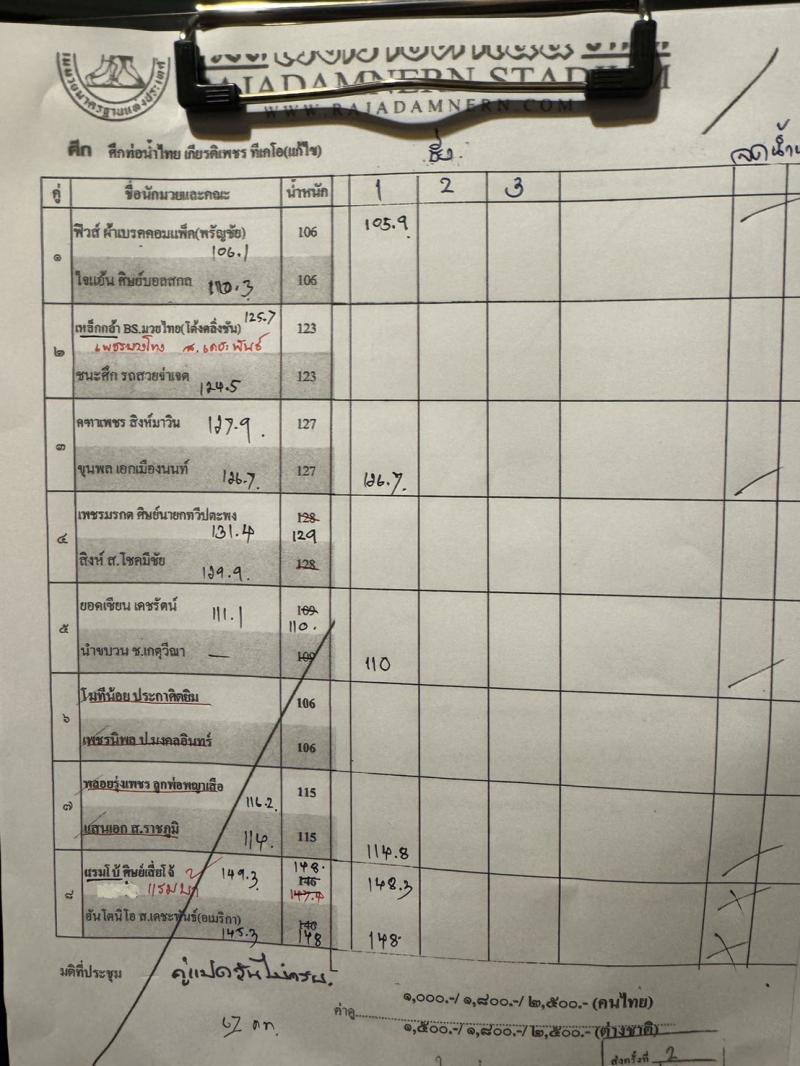 RAJADAMNERN STADIUM
WWW.RAJADAMNERN.COM
ศึก ศึกท่อน้ำไทย เกียรติเพชร ทีเคโอ(แก้ไข) ชั่ง
คู่ ชื่อนักมวยและคณะ น้ำหนัก 1 2 3
๑ ฟิวส์ ผ้าเบรคคอมแพ็ค(พรัญชัย) 106 105.9
106.1
ใจแอ้น ศิษย์บอลสกล 110.3 106
๒ เหล็กกล้า BS.มวยไทย(โด้งตลิ่งชัน) 125.7 123
ชนะศึก รถสวยจ่าเจต 124.5 123
๓ คฑาเพชร สิงห์มาวิน 127.9 127
ขุนพล เอกเมืองนนท์ 126.7 127 126.7
๔ เพชรมรกต ศิษย์นายกทวีปตะพง 128
131.4 129
สิงห์ ส.โชคมีชัย 129.9 128
๕ ยอดเซียน เดชรัตน์ 111.1 109
110.
นำขบวน ช.เกตุวีณา — 109 110
๖ โมทีน้อย ประกาศิตยิม 106
เพชรนิพล ป.มงคลอินทร์ 106
๗ พลอยรุ่งเพชร ลูกพ่อพญาเสือ 116.2 115
แสนเอก ส.ราชภูมิ 114. 115 114.8
๘ แรมโบ้ ศิษย์เสี่ยโจ้ 149.3 148. 146 147.4 148.3
อันโตนิโอ ส.เดชะพันธ์(อเมริกา) 145.3 148 148.
มติที่ประชุม
ค่าดู ๑,๐๐๐.-/ ๑,๘๐๐.-/ ๒,๕๐๐.- (คนไทย)
๑,๕๐๐.-/ ๑,๘๐๐.-/ ๒,๕๐๐.- (ต่างชาติ)
ส่งครั้งที่ 2